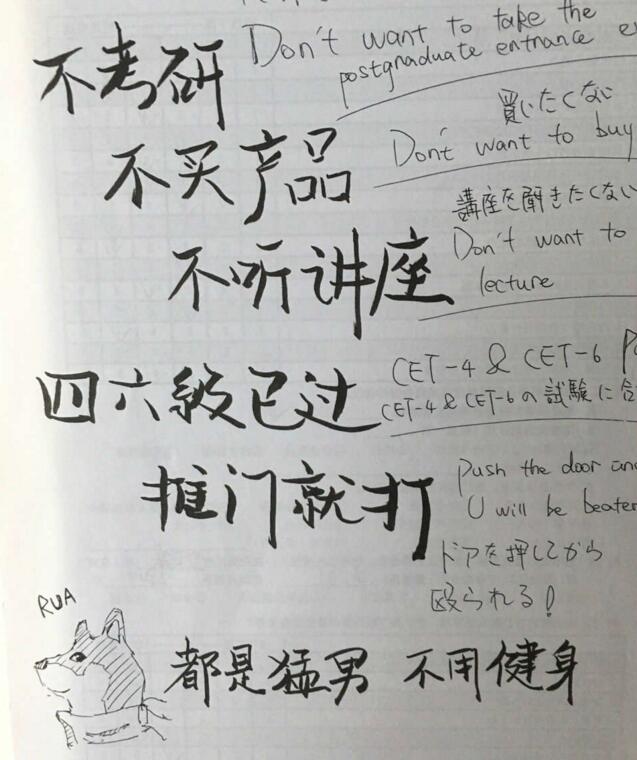 不考研
Don't want to take the
postgraduate entrance
不买产品
買いたくない
Don't want to buy
不听讲座
講座を聞きたくない
Don't want to
lecture
四六级已过
CET-4 & CET-6
CET-4 & CET-6 の試験に合
推门就打
Push the door and
U will be beaten
ドアを押してから
殴られる!
RUA
都是猛男 不用健身